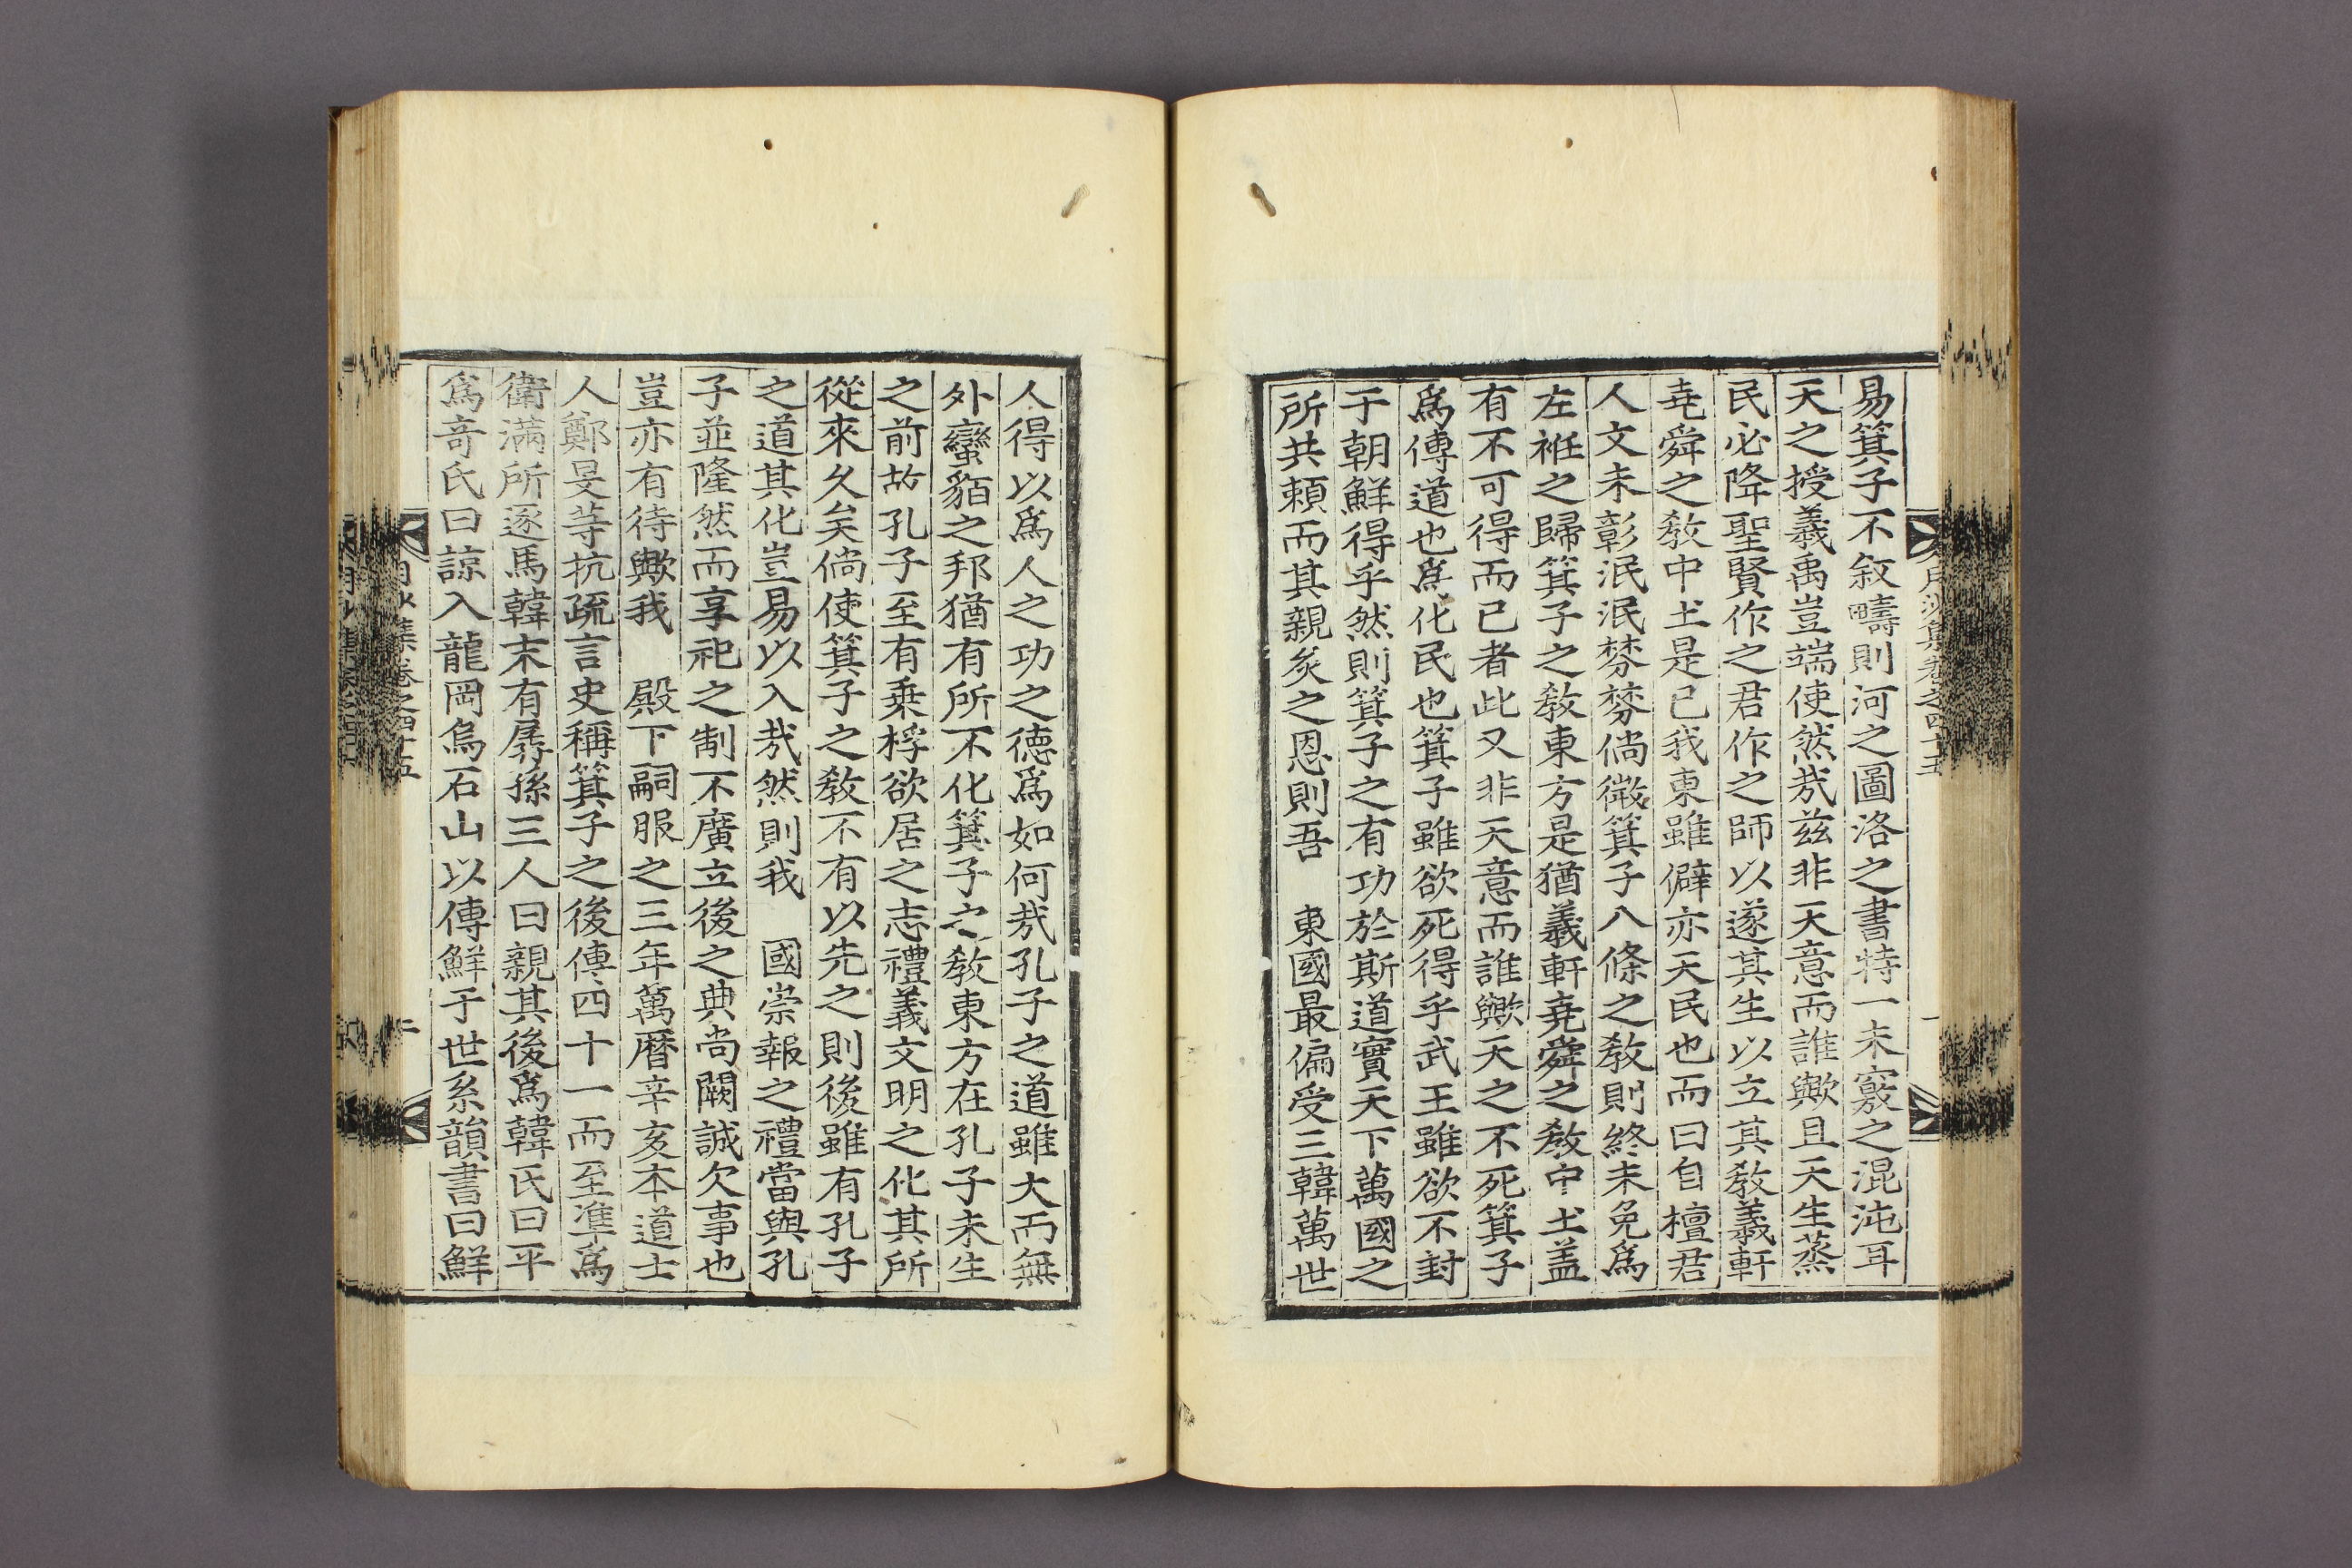 易箕子不叙疇則河之圖洛之書特一未竅之混沌耳
天之授羲禹豈端使然㢤茲非天意而誰歟且天生蒸
民必降聖賢作之君作之師以遂其生以立其敎羲軒
堯舜之敎中土是已我東雖僻亦天民也而曰自檀君
人文未彰泯泯棼棼倘微箕子八條之敎則終未免爲
左袵之歸箕子之敎東方是猶羲軒堯舜之敎中土盖
有不可得而已者此又非天意而誰歟天之不死箕子
爲傳道也爲化民也箕子雖欲死得乎武王雖欲不封
于朝鮮得乎然則箕子之有功於斯道實天下萬國之
所共頼而其親炙之恩則吾 東國最偏受三韓萬世
人得以爲人之功之德爲如何㢤孔子之道雖大而無
外蠻貊之邦猶有所不化箕子之敎東方在孔子未生
之前故孔子至有乗桴欲居之志禮義文明之化其所
從來久矣倘使箕子之敎不有以先之則後雖有孔子
之道其化豈易以入㢤然則我 國崇報之禮當與孔
子並隆然而享祀之制不廣立後之典尙闕誠欠事也
豈亦有待歟我 殿下嗣服之三年萬曆辛亥本道士
人鄭旻等抗疏言史稱箕子之後傳四十一而至準爲
衛滿所逐馬韓末有孱孫三人曰親其後爲韓氏曰平
爲竒氏曰諒入龍岡烏石山以傳鮮于世系韻書曰鮮
月沙集卷之四十五
二